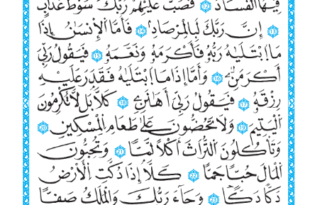 فِيهَا الْفَسَادَ ۝١٢ فَصَبَّ عَلَيْهِمْ رَبُّكَ سَوْطَ عَذَابٍ
۝١٣ إِنَّ رَبَّكَ لَبِالْمِرْصَادِ ۝١٤ فَأَمَّا الْإِنْسَٰنُ إِذَا
مَا ابْتَلَىٰهُ رَبُّهُ فَأَكْرَمَهُ وَنَعَّمَهُ ۝١٥ فَيَقُولُ رَبِّي
أَكْرَمَنِ ۝١٦ وَأَمَّا إِذَا مَا ابْتَلَىٰهُ فَقَدَرَ عَلَيْهِ
رِزْقَهُ ۝١٧ فَيَقُولُ رَبِّي أَهَٰنَنِ ۝١٨ كَلَّا بَل لَّا تُكْرِمُونَ
الْيَتِيمَ ۝١٩ وَلَا تَحُضُّونَ عَلَىٰ طَعَامِ الْمِسْكِينِ ۝٢٠
وَتَأْكُلُونَ التُّرَاثَ أَكْلًا لَّمًّا ۝٢١ وَتُحِبُّونَ
الْمَالَ حُبًّا جَمًّا ۝٢٢ كَلَّا إِذَا دُكَّتِ الْأَرْضُ
دَكًّا دَكًّا ۝٢٣ وَجَاءَ رَبُّكَ وَالْمَلَكُ صَفًّا